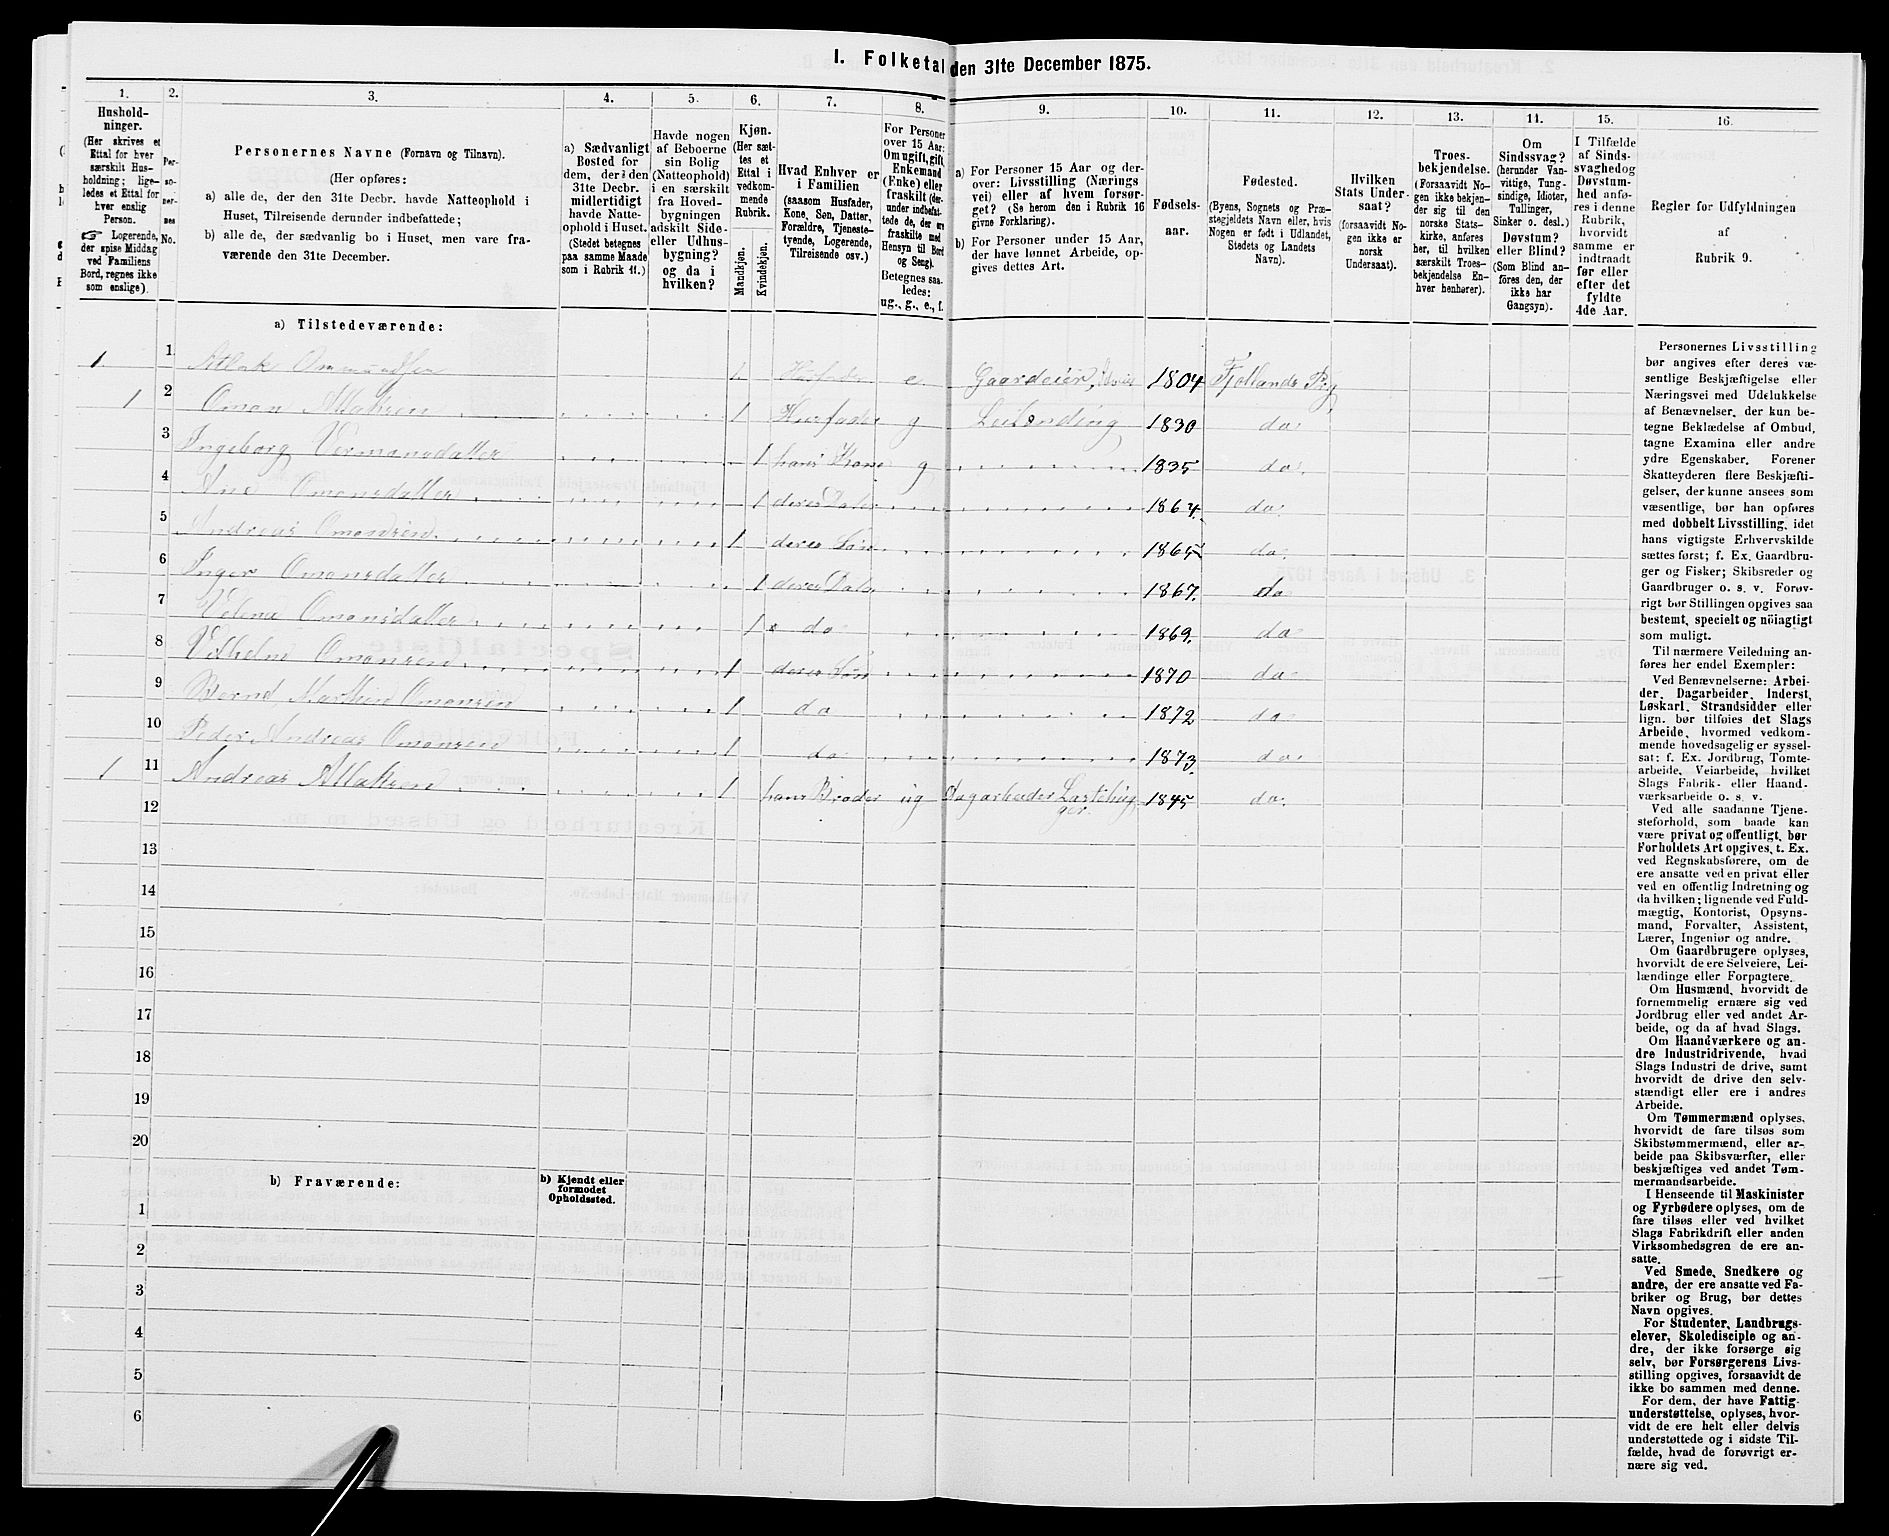 I. Folketal den 31te December 1875.
1.
Hushold-
ninger.
(Her skrives et
Ettal for hver
særskilt Hus-
holdning; lige-
ledes et Ettal for
hver enslig
Person.
☞ Logerende,
der spise Middag
ved Familiens
Bord, regnes ikke
som enslige).
2.
Per-
so-
ner-
nes
No.
3.
Personernes Navne (Fornavn og Tilnavn).
(Her opføres:
a) alle de, der den 31te Decbr. havde Natteophold i
Huset, Tilreisende derunder indbefattede;
b) alle de, der sædvanlig bo i Huset, men vare fra-
værende den 31te December.
4.
a) Sædvanligt
Bosted for
dem, der den
31te Decbr.
midlertidigt
havde Natte-
ophold i Huset.
(Stedet betegnes
paa samme Maade
som i Rubrik 11.)
5.
Havde nogen
af Beboerne
sin Bolig
(Natteophold)
i en særskilt
fra Hoved-
bygningen
adskilt Side-
eller Udhus-
bygning?
og da i
hvilken?
6.
Kjøn.
(Her sæt-
tes et
Ettal i
vedkom-
mende
Rubrik.
Mandkjøn.
Kvindekjøn.
7.
Hvad Enhver er
i Familien
(saasom Husfader,
Kone, Søn, Datter,
Forældre, Tjeneste-
tyende, Logerende,
Tilreisende osv.)
8.
For Personer
over 15 Aar:
Om ugift, gift,
Enkemand
(Enke) eller
fraskilt (der-
under indbefat-
tede de, der ere
fraskilte med
Hensyn til Bord
og Seng).
Betegnes saa-
ledes:
ug., g., e., f.
9.
a) For Personer 15 Aar og der-
over: Livsstilling (Nærings
vei) eller af hvem forsør-
get? (Se herom den i Rubrik 16
givne Forklaring).
b) For Personer under 15 Aar,
der have lønnet Arbeide, op-
gives dettes Art.
10.
Fødsels-
aar.
11.
Fødested.
(Byens, Sognets og Præ-
stegjeldets Navn eller, hvis
Nogen er født i Udlandet,
Stedets og Landets
Navn).
12.
Hvilken
Stats Under-
saat?
(forsaavidt No-
gen ikke er
norsk
Undersaat).
13.
Troes-
bekjendelse.
(Forsaavidt No-
gen ikke bekjen-
der sig til den
norske Stats-
kirke, anføres
her, til hvilken
særskilt Troes-
bekjendelse En-
hver henhører).
14.
Om
Sindssvag?
(herunder Van-
vittige, Tung-
sindige, Idioter,
Tullinger,
Sinker o. desl.)
Døvstum?
eller Blind?
(Som Blind an-
føres den, der
ikke har
Gangsyn).
15.
I Tilfælde
af Sinds-
svaghed og
Døvstum-
hed anfø-
res i denne
Rubrik,
hvorvidt
samme er
indtraadt
før eller
efter det
fyldte
4de Aar.
16.
Regler for Udfyldningen
af
Rubrik 9.
a) Tilstedeværende:
1. 1 Atlak Ommundsen 1 Husfader e Gaardeier, 1804 Fjotlands Pg
1 2 Omon Atlaksen 1 Husfader g Leilending 1830 do.
3 Ingeborg Vermonsdatter 1 hans Kone g 1835 do.
4 Ane Omonsdatter 1 deres Dater 1864. do.
5 Andreas Omonsen 1 deres Søn 1865 do.
6 Inger Omonsdatter 1 deres Dater 1867. do
7 Velene Omonsdatter 1 do 1869. do
8 Vilhelm Omonsen 1 deres Søn 1870 do
9 Bernt Marthin Omonsen 1 do 1872 do
10 Peder Andreas Omonsen 1 do 1873. do
1 11 Andreas Atlaksen 1 hans Broder ug Dagarbeider 1845 do.
12
13
14
15
16
17
18
19
20
b) Fraværende:
b) Kjendt eller
formodet
Opholdssted.
1
2
3
4
5
6
Personernes Livsstilling
bør angives efter deres væ-
sentlige Beskjæftigelse eller
Næringsvei med Udelukkelse
af Benævnelser, der kun be-
tegne Beklædelse af Ombud,
tagne Examina eller andre
ydre Egenskaber. Forener
Skatteyderen flere Beskjæfti-
gelser, der kunne ansees som
væsentlige, bør han opføres
med dobbelt Livsstilling, idet
hans vigtigste Erhvervskilde
sættes først; f. Ex. Gaardbru-
ger og Fisker; Skibsreder og
Gaardbruger o. s. v. Forøv-
rigt bør Stillingen opgives saa
bestemt, specielt og nöiagtigt
som muligt.
Til nærmere Veiledning an-
føres her endel Exempler:
Ved Benævnelserne: Arbei-
der, Dagarbeider, Inderst,
Løskarl, Strandsidder eller
lign. bør tilføies det Slags
Arbeide, hvormed vedkom-
mende hovedsagelig er syssel-
sat: f. Ex. Jordbrug, Tomte-
arbeide, Veiarbeide, hvilket
Slags Fabrik- eller Haand-
værksarbeide o. s. v.
Ved alle saadanne Tjene-
steforhold, som baade kan
være privat og offentligt, bør
Forholdets Art opgives, t. Ex.
ved Regnskabsførere, om de
ere ansatte ved en privat eller
ved en offentlig Indretning og
da hvilken; lignende ved Fuld-
mægtig, Kontorist, Opsyns-
mand, Forvalter, Assistent,
Lærer, Ingeniør og andre.
Om Gaardbrugere oplyses,
hvorvidt de ere Selveiere, Lei-
lændinge eller Forpagtere.
Om Husmænd, hvorvidt de
fornemmelig ernære sig ved
Jordbrug eller ved andet Ar-
beide, og da af hvad Slags.
Om Haandværkere og an-
dre Industridrivende, hvad
Slags Industri de drive, samt
hvorvidt de drive den selv-
stændigt eller ere i andres
Arbeide.
Om Tømmermænd oplyses,
hvorvidt de fare tilsøs som
Skibstømmermænd, eller ar-
beide paa Skibsværfter, eller
beskjæftiges ved andet Tøm-
mermandsarbeide.
I Henseende til Maskinister
og Fyrbødere oplyses, om de
fare tilsøs eller ved hvilket
Slags Fabrikdrift eller anden
Virksomhedsgren de ere an-
satte.
Ved Smede, Snedkere og
andre, der ere ansatte ved Fa-
briker og Brug, bør dettes
Navn opgives.
For Studenter, Landbrugs-
elever, Skoledisciple og an-
dre, der ikke forsørge sig
selv, bør Forsørgerens Livs-
stilling opgives, forsaavidt de
ikke bo sammen med denne.
For dem, der have Fattig-
understøttelse, oplyses, hvor-
vidt de ere helt eller delvis
understøttede og i sidste Til-
fælde, hvad de forøvrigt er-
nære sig ved.